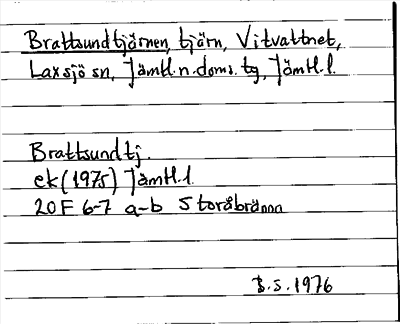 Brattsundtjärnen, tjärn, Vitvattnet,
Laxsjö sn, Jämtl. n. doms. tg, Jämtl. l.
Brattsundtj.
ek (1975) Jämtl. l.
20F 6-7 a-b Storåbränna
B.S. 1976